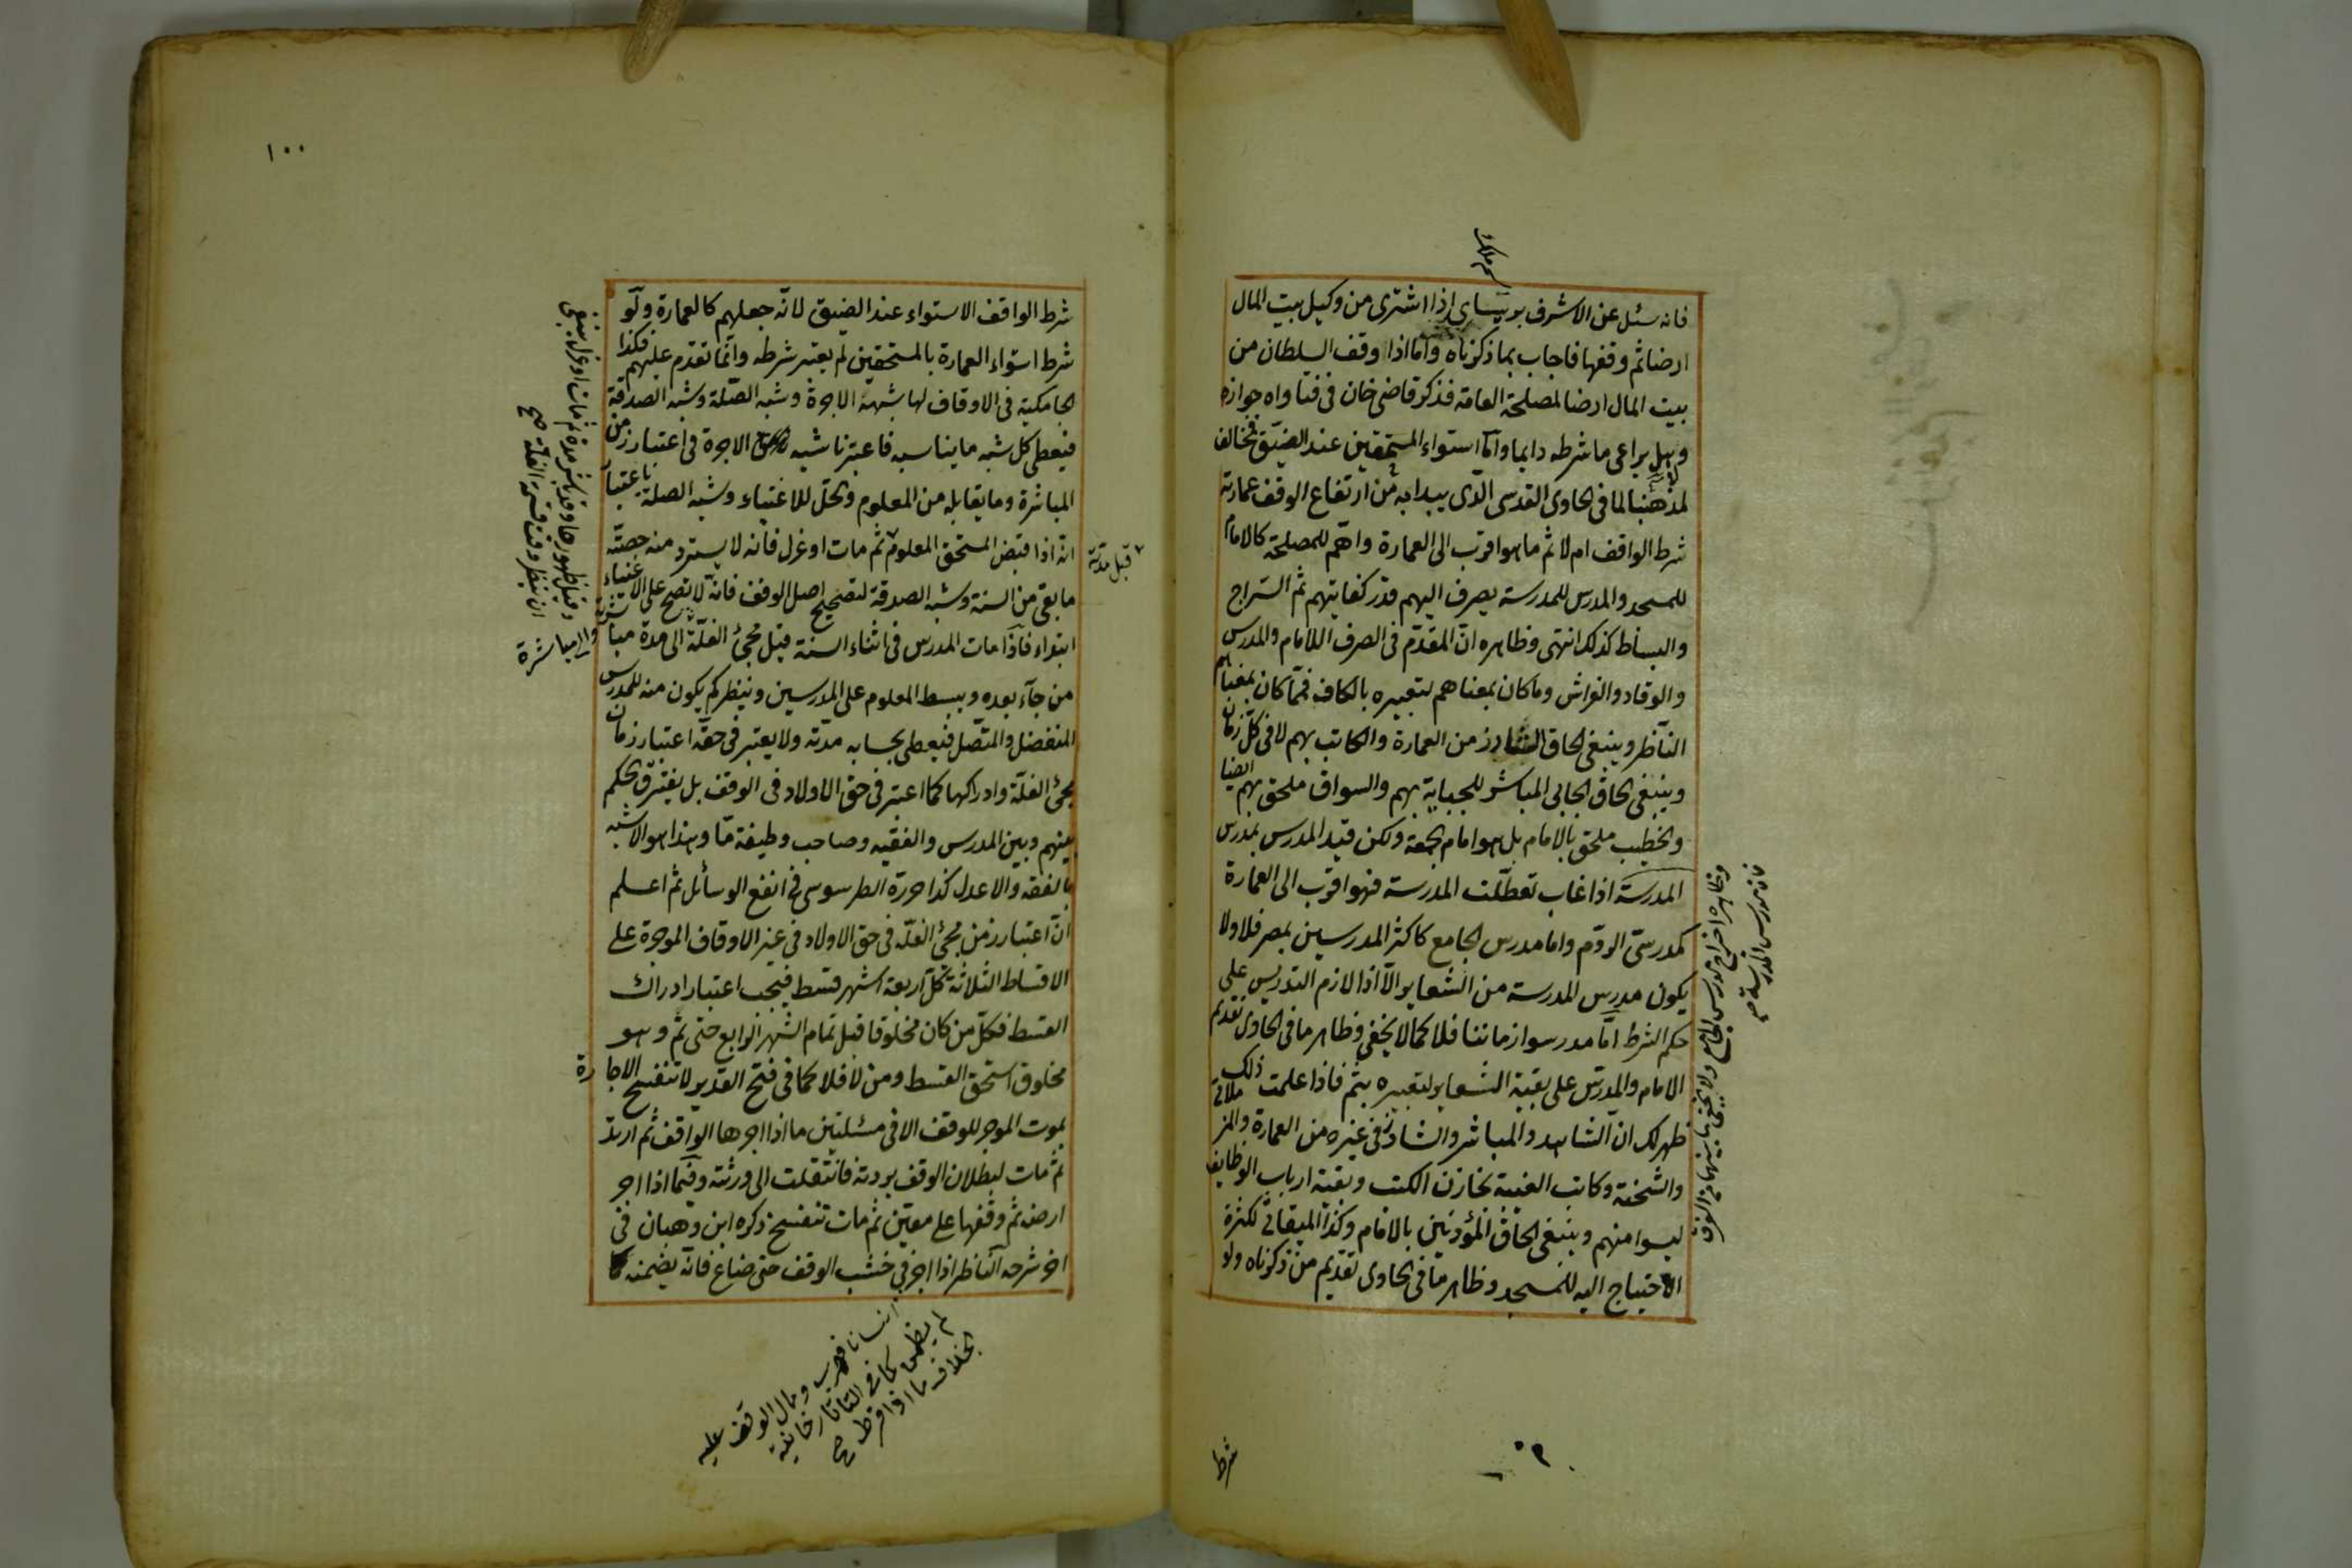 فانه سئل عن الاشرف برسباي اذا اشترى من وكيل بيت المال
ارضا ثم وقفها فاجاب بما ذكرناه واما اذا وقف السلطان من
بيت المال ارضا لمصلحة العامة فذكر قاضى خان فى فتاواه جوازه
وهل يراعى ما شرطه دايما واما استواء المستحقين عند الضيق فمخالف
لمذهبنا لما فى الحاوى القدسى الذى يبدا به من ارتفاع الوقف عمارته
شرط الواقف ام لا ثم ما هو اقرب الى العمارة واهم للمصلحة كالامام
للمسجد والمدرس للمدرسة يصرف اليهم قدر كفايتهم ثم السراج
والبساط كذلك انتهى وظاهره ان المقدم فى الصرف اللامام والمدرس
والوقاد والفراش وما كان بمعناهم لتعبيره بالكاف فما كان بمعناهم
الناظر وينبغى الحاق الشاد زمن العمارة والكاتب بهم لا فى كل زمان
وينبغى الحاق الجابى المباشر للجباية بهم والسواق ملحق بهم ايضا
والخطيب ملحق بالامام بل هو امام الجمعة ولكن قيد المدرس بمدرس
المدرسة اذا غاب تعطلت المدرسة فهو اقرب الى العمارة
كمدرسى الروم واما مدرس الجامع كاكثر المدرسين بمصر فلا ولا
يكون مدرس المدرسة من الشعاير الا اذا لازم التدريس على
حكم الشرط اما مدرسوا زماننا فلا كما لا يخفى وظاهر ما فى الحاوى تقديم
الامام والمدرس على بقية الشعاير لتعبيره بثم فاذا علمت ذلك
ظهر لك ان الشاهد والمباشر والشاد فى غيره من العمارة والمزملاتى
والشحنة وكاتب الغيبة بخازن الكتب وبقية ارباب الوظايف
ليسوا منهم وينبغى الحاق المؤذنين بالامام وكذا الميقاتى لكثرة
الاحتياج اليه للمسجد وظاهر ما فى الحاوى تقديم من ذكرناه ولو
شرط
١٠٠
شرط الواقف الاستواء عند الضيق لانه جعلهم كالعمارة ولو
شرط استواء العمارة بالمستحقين لم يعتبر شرطه وانما تقدم عليهم فكذا
الجامكية فى الاوقاف لها شبهة الاجرة وشبه الصلة وشبه الصدقة
فيعطى كل شبه ما يناسبه فاعتبرنا شبه الاجرة فى اعتبار زمن
المباشرة وما يقابله من المعلوم والحل للاغنياء وشبه الصلة باعتبار
انه اذا قبض المستحق المعلوم ثم مات او عزل فانه لا يسترد منه حصته
ما بقى من السنة وشبه الصدقة لتصحيح اصل الوقف فانه لا يصح على الاغنياء
ابتداء فاذا مات المدرس فى اثناء السنة قبل مجئ الغلة الى مدة مباشرته
من جآء بعده ويبسط المعلوم على المدرسين وينظر كم يكون منه للمدرس
المنفصل والمتصل فيعطى بحسابه مدته ولا يعتبر فى حقه اعتبار زمان
مجئ الغلة وادراكها كما اعتبر فى حق الاولاد فى الوقف بل يفترق الحكم
بينهم وبين المدرس والفقيه وصاحب وظيفة ما وهذا هو الاشبه
بالفقه والاعدل كذا حرره الطرسوسى فى انفع الوسائل ثم اعلم
ان اعتبار زمن مجئ الغلة فى حق الاولاد فى غير الاوقاف الموجرة على
الاقساط الثلاثة كل اربعة اشهر قسط فيجب اعتبار ادراك
القسط فكل من كان مخلوقا قبل تمام الشهر الرابع حتى تم وهو
مخلوق استحق القسط ومن لا فلا كما فى فتح القدير لا تنفسخ الاجارة
بموت الموجر للوقف الا فى مسئلتين ما اذا اجرها الواقف ثم ارتد
ثم مات لبطلان الوقف بردته فانتقلت الى ورثته وفيما اذا اجر
ارضه ثم وقفها على معين ثم مات تنفسخ ذكره ابن وهبان فى
اخر شرحه الناظر اذا اجر فى خشب الوقف حتى ضاع فانه يضمنه
قبل مدته
وقبل ظهورها وقد باشر مدة ثم مات او عزل ينبغى
ان ينظر وقت قسمة الغلة صح
والمباشرة
انسانا فهرب ومال الوقف عليه
لم يضمن كما فى التاتارخانية
بخلاف ما اذا فرط صح